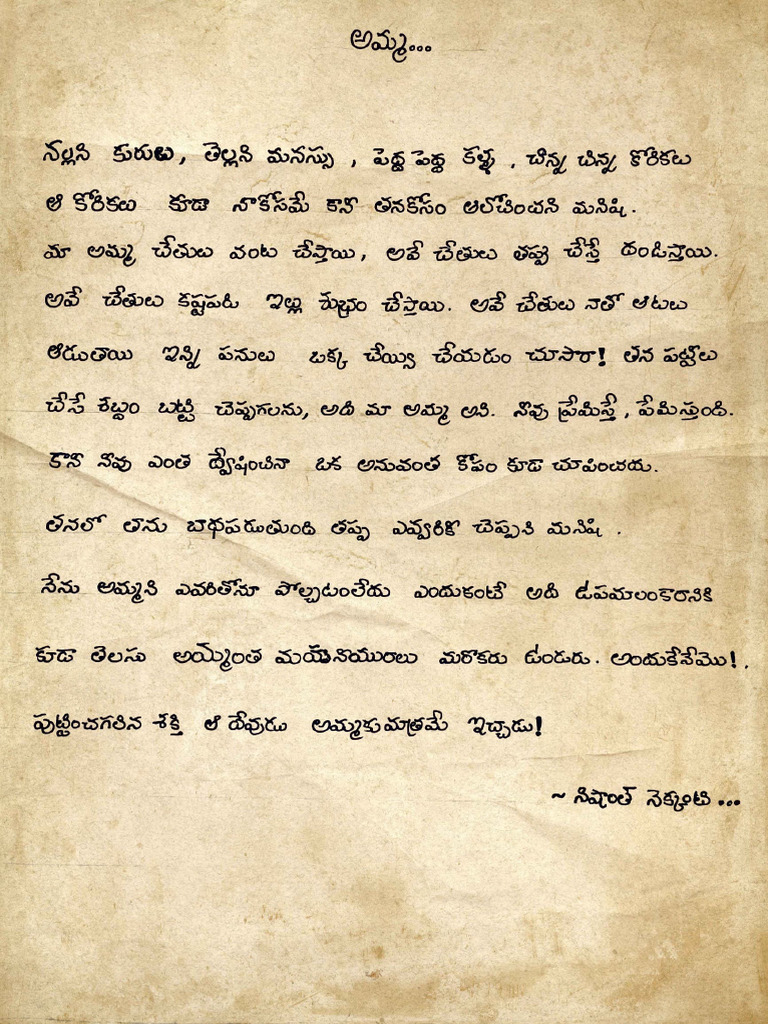 అమ్మ...
నల్లని కురులు, తెల్లని మనస్సు , పెద్ద పెద్ద కళ్ళు , చిన్న చిన్న కోరికలు
ఆ కోరికలు కూడా నాకోసమే కానీ తనకోసం ఆలోచించని మనిషి.
మా అమ్మ చేతులు వంట చేస్తాయి, అవే చేతులు తప్పు చేస్తే దండిస్తాయి.
అవే చేతులు కష్టపడి ఇల్లు శుభ్రం చేస్తాయి. అవే చేతులు నాతో ఆటలు
ఆడుతాయి ఇన్ని పనులు ఒక్క చేయ్యి చేయడం చూసారా! తన పట్టీలు
చేసే శబ్దం బట్టి చెప్పగలను, అది మా అమ్మ అని. నీవు ప్రేమిస్తే, పేమిస్తుంది.
కానీ నీవు ఎంత ద్వేషించినా ఒక అనువంత కోపం కూడా చూపించదు.
తనలో తాను బాధపడుతుంది తప్ప ఎవ్వరికీ చెప్పని మనిషి .
నేను అమ్మని ఎవరితోనూ పోల్చటంలేదు ఎందుకంటే అది ఉపమాలంకారానికి
కూడా తెలుసు అమ్మంత మధురమైనవారు మరొకరు ఉండరు. అందుకేనేమొ!.
పుట్టించగలిన శక్తి ఆ దేవుడు అమ్మకుమాత్రమే ఇచ్చాడు!
~ నిషాంత్ నెక్కంటి ...